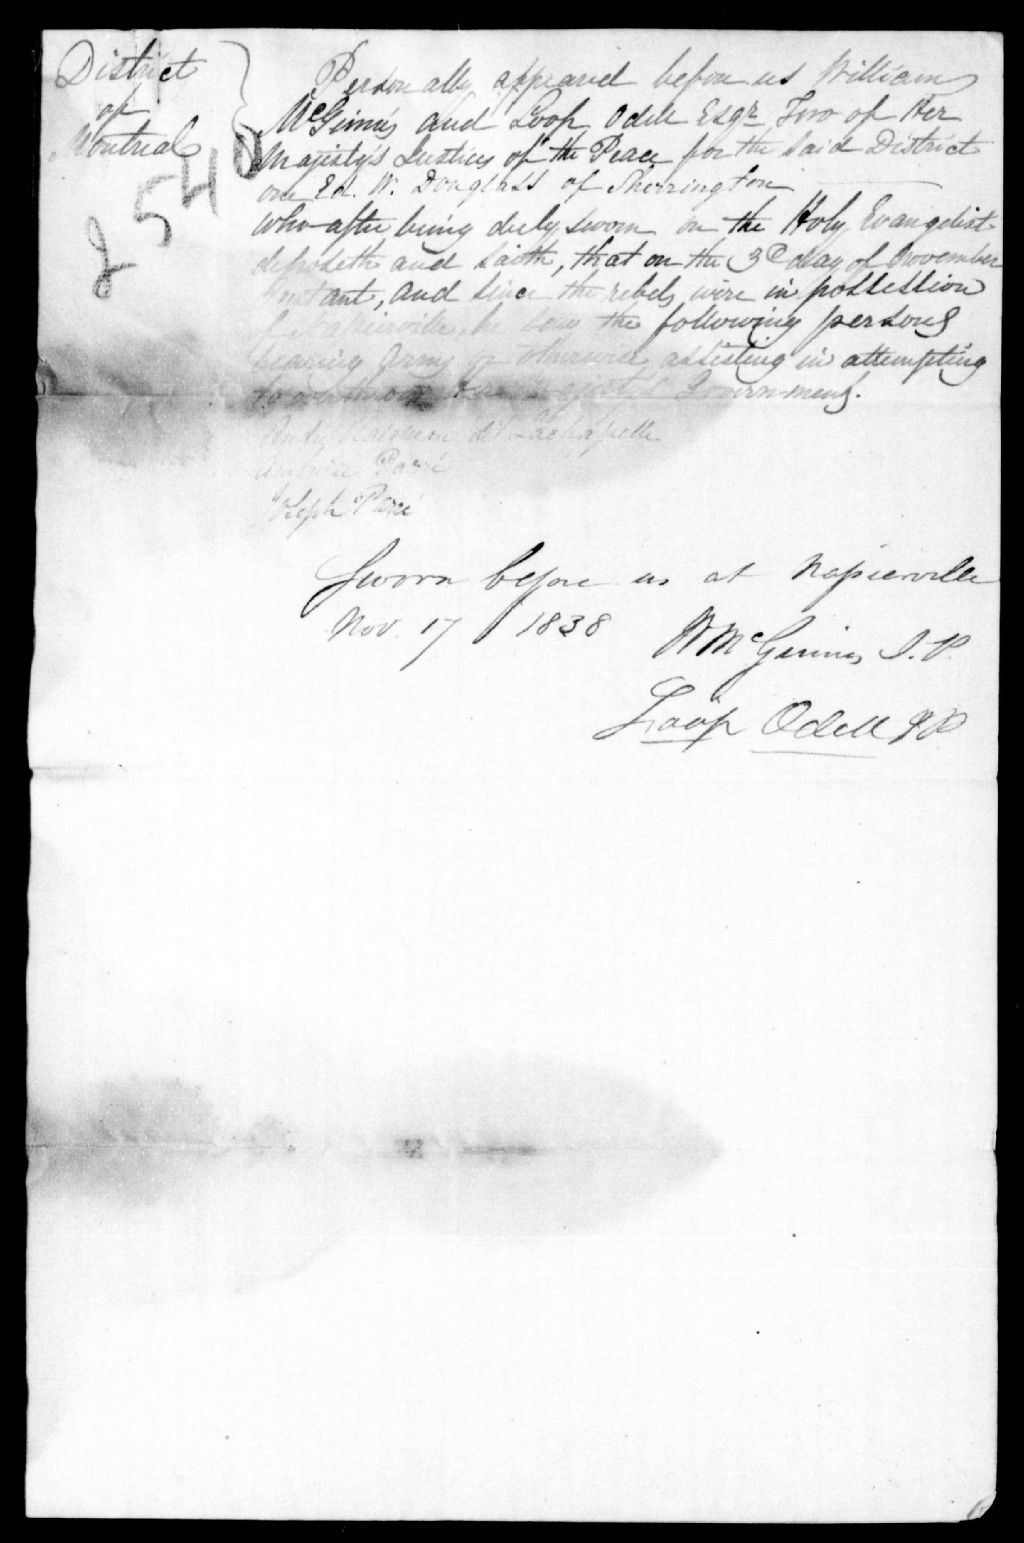 District
of
Montreal
2540
Personally appeared before us William
McGinnis and Loop Odell Esqr Two of Her
Majesty's Justices of the Peace for the said District
one Ed. W. Douglass of Sherrington
who after being duly sworn on the Holy Evangelist
deposeth and saith, that on the 3d day of November
Instant, and since the rebels were in possession
of Napierville, he saw the following persons
bearing Arms or otherwise assisting in attempting
to Government.
dit Lachapelle
Ambroise Paré
Joseph Paré
Sworn before us at Napierville
Nov. 17 1838
W McGinnis J.P.
Loop Odell JP